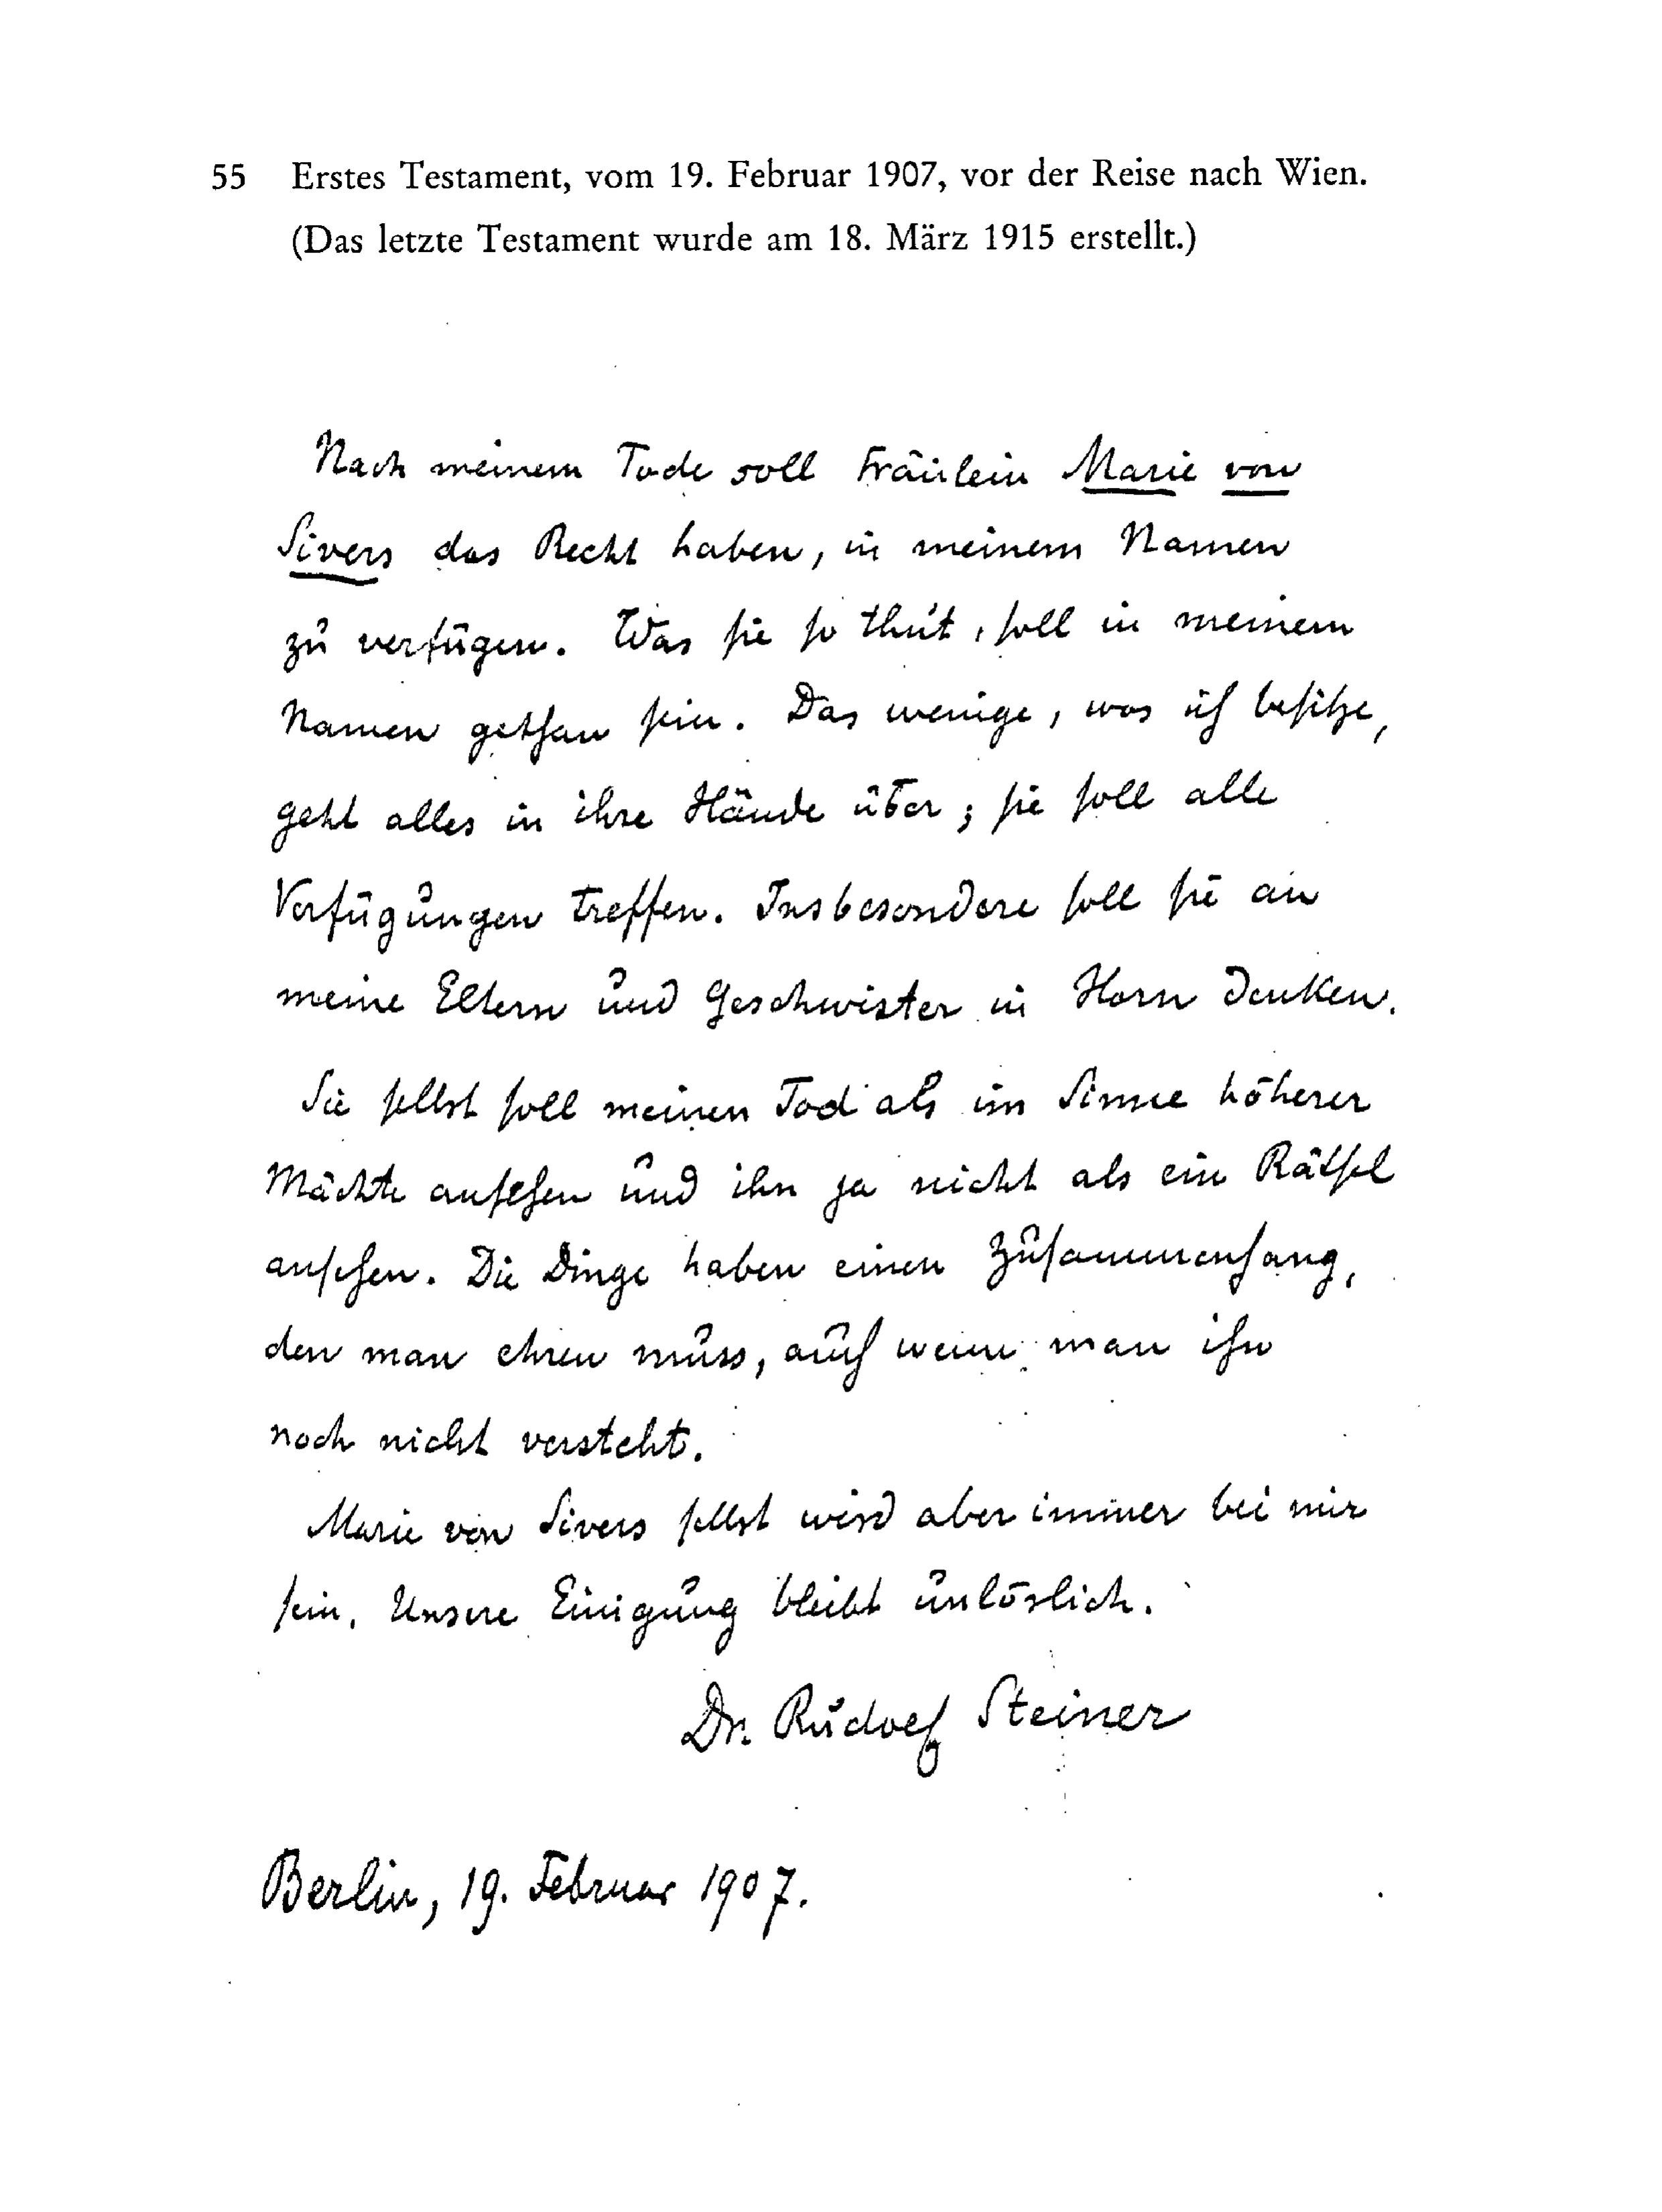 55 Erstes Testament, vom 19. Februar 1907, vor der Reise nach Wien.
(Das letzte Testament wurde am 18. März 1915 erstellt.)
Nach meinem Tode soll Fräulein Marie von
Sivers das Recht haben, in meinem Namen
zu verfügen. Was sie so thut, soll in meinem
Namen gethan sein. Das wenige, was ich besitze,
geht alles in ihre Hände über; sie soll alle
Verfügungen treffen. Insbesondere soll sie an
meine Eltern und Geschwister in Horn denken.
Sie selbst soll meinen Tod als im Sinne höherer
Mächte ansehen und ihn ja nicht als ein Rätsel
ansehen. Die Dinge haben einen Zusammenhang,
den man ehren muss, auch wenn man ihn
noch nicht versteht.
Marie von Sivers selbst wird aber immer bei mir
sein. Unsere Einigung bleibt unlöslich.
Dr. Rudolf Steiner
Berlin, 19. Februar 1907.